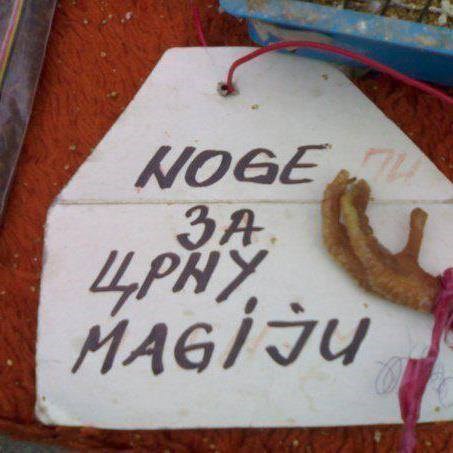 NOGE
ЗА
ЦРНУ
MAGIJU